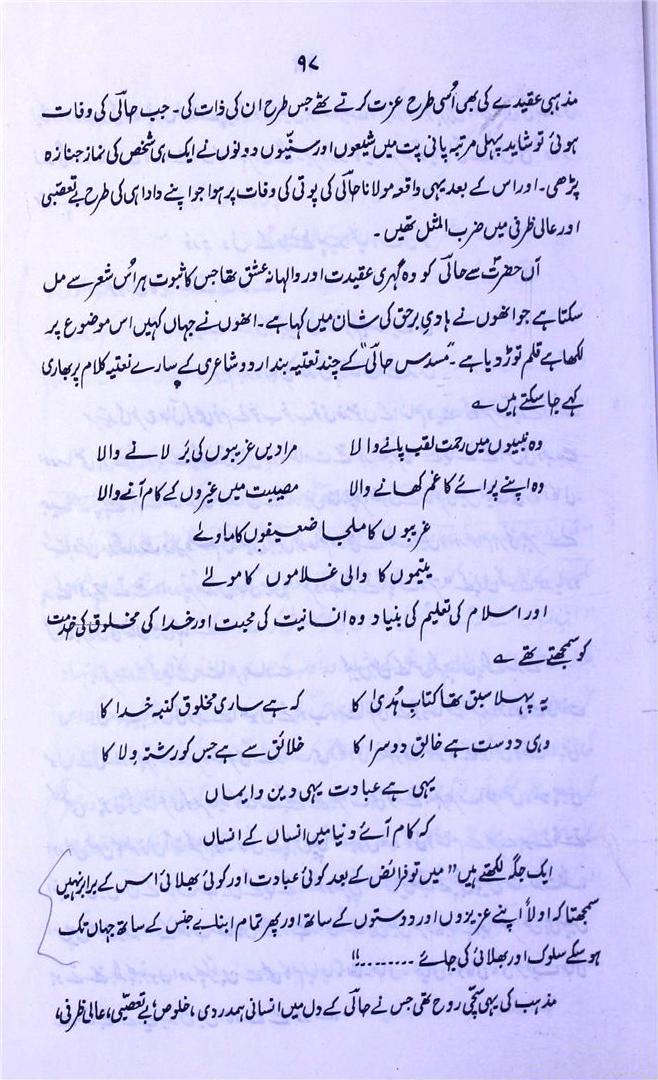 ۹۷
مذہبی عقیدے کی بھی اُسی طرح عزت کرتے تھے جس طرح ان کی ذات کی۔ جب حالیؔ کی وفات
ہوئی تو شاید پہلی مرتبہ پانی پت میں شیعوں اور سنّیوں دونوں نے ایک ہی شخص کی نماز جنازہ
پڑھی۔ اور اس کے بعد یہی واقعہ مولانا حالیؔ کی پوتی کی وفات پر ہوا جو اپنے دادا ہی کی طرح بے تعصبی
اور عالی ظرفی میں ضرب المثل تھیں۔
آں حضرتؐ سے حالیؔ کو وہ گہری عقیدت اور والہانہ عشق تھا جس کا ثبوت ہر اُس شعر سے مل
سکتا ہے جو انھوں نے ہادیِ برحق کی شان میں کہا ہے۔ انھوں نے جہاں کہیں اس موضوع پر
لکھا ہے قلم توڑ دیا ہے۔ "مسدس حالیؔ" کے چند نعتیہ بند اردو شاعری کے سارے نعتیہ کلام پر بھاری
کہے جا سکتے ہیں ؎
وہ نبیوں میں رحمت لقب پانے والا مرادیں غریبوں کی بَر لانے والا
وہ اپنے پرائے کا غم کھانے والا مصیبت میں غیروں کے کام آنے والا
غریبوں کا ملجا ضعیفوں کا ماویٰ
یتیموں کا والی غلاموں کا مولیٰ
اور اسلام کی تعلیم کی بنیاد وہ انسانیت کی محبت اور خدا کی مخلوق کی خدمت
کو سمجھتے تھے ؎
یہ پہلا سبق تھا کتابِ ہُدیٰ کا کہ ہے ساری مخلوق کنبہ خدا کا
وہی دوست ہے خالقِ دوسرا کا خلائق سے ہے جس کو رشتہ ولا کا
یہی ہے عبادت یہی دین و ایماں
کہ کام آئے دنیا میں انساں کے انساں
ایک جگہ لکھتے ہیں "میں تو فرائض کے بعد کوئی عبادت اور کوئی بھلائی اس کے برابر نہیں
سمجھتا کہ اولاً اپنے عزیزوں اور دوستوں کے ساتھ اور پھر تمام ابنائے جنس کے ساتھ جہاں تک
ہو سکے سلوک اور بھلائی کی جائے ........"
مذہب کی یہی سچی روح تھی جس نے حالیؔ کے دل میں انسانی ہمدردی، خلوص، بے تعصّبی، عالی ظرفی،